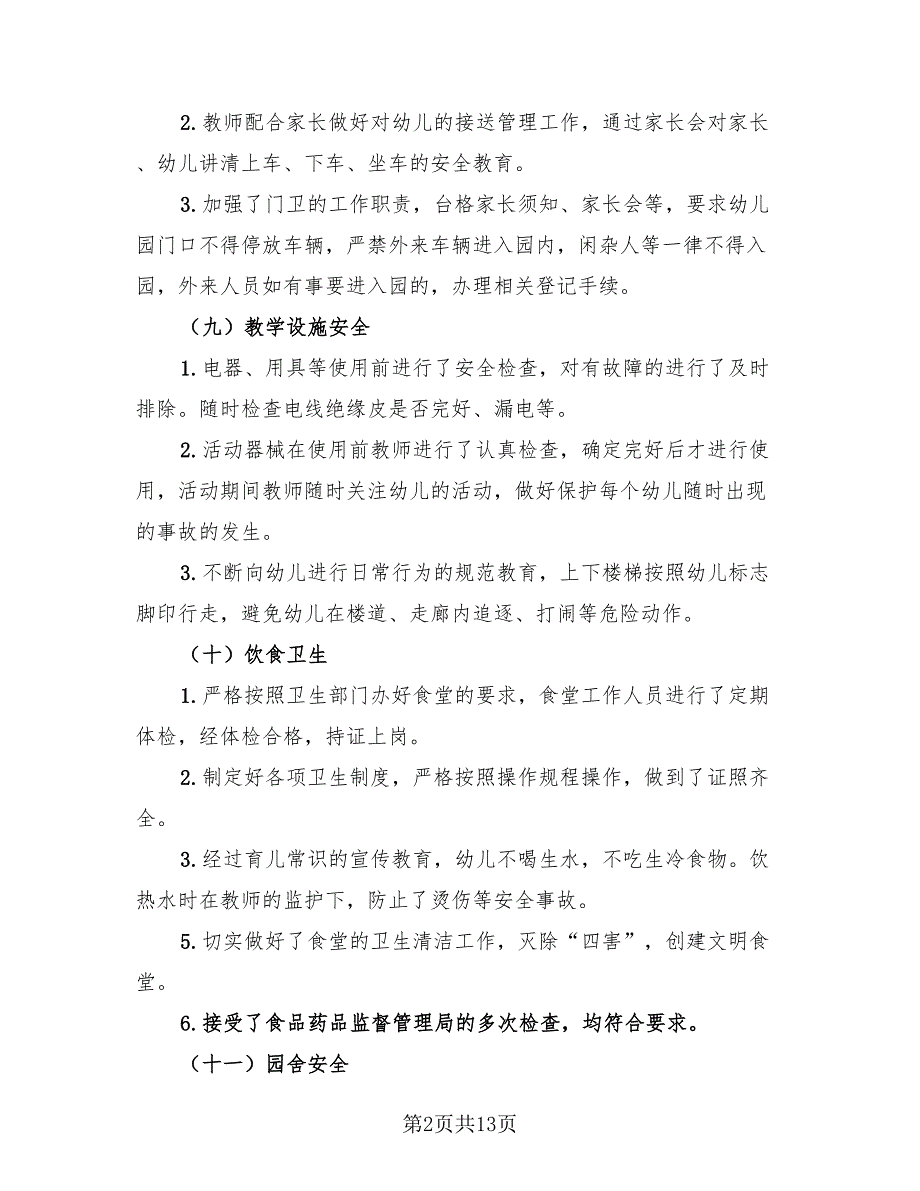 2.教师配合家长做好对幼儿的接送管理工作，通过家长会对家长
、幼儿讲清上车、下车、坐车的安全教育。
3.加强了门卫的工作职责，台格家长须知、家长会等，要求幼儿
园门口不得停放车辆，严禁外来车辆进入园内，闲杂人等一律不得入
园，外来人员如有事要进入园的，办理相关登记手续。
（九）教学设施安全
1.电器、用具等使用前进行了安全检查，对有故障的进行了及时
排除。随时检查电线绝缘皮是否完好、漏电等。
2.活动器械在使用前教师进行了认真检查，确定完好后才进行使
用，活动期间教师随时关注幼儿的活动，做好保护每个幼儿随时出现
的事故的发生。
3.不断向幼儿进行日常行为的规范教育，上下楼梯按照幼儿标志
脚印行走，避免幼儿在楼道、走廊内追逐、打闹等危险动作。
（十）饮食卫生
1.严格按照卫生部门办好食堂的要求，食堂工作人员进行了定期
体检，经体检合格，持证上岗。
2.制定好各项卫生制度，严格按照操作规程操作，做到了证照齐
全。
3.经过育儿常识的宣传教育，幼儿不喝生水，不吃生冷食物。饮
热水时在教师的监护下，防止了烫伤等安全事故。
5.切实做好了食堂的卫生清洁工作，灭除“四害”，创建文明食
堂。
6.接受了食品药品监督管理局的多次检查，均符合要求。
（十一）园舍安全
第2页共13页